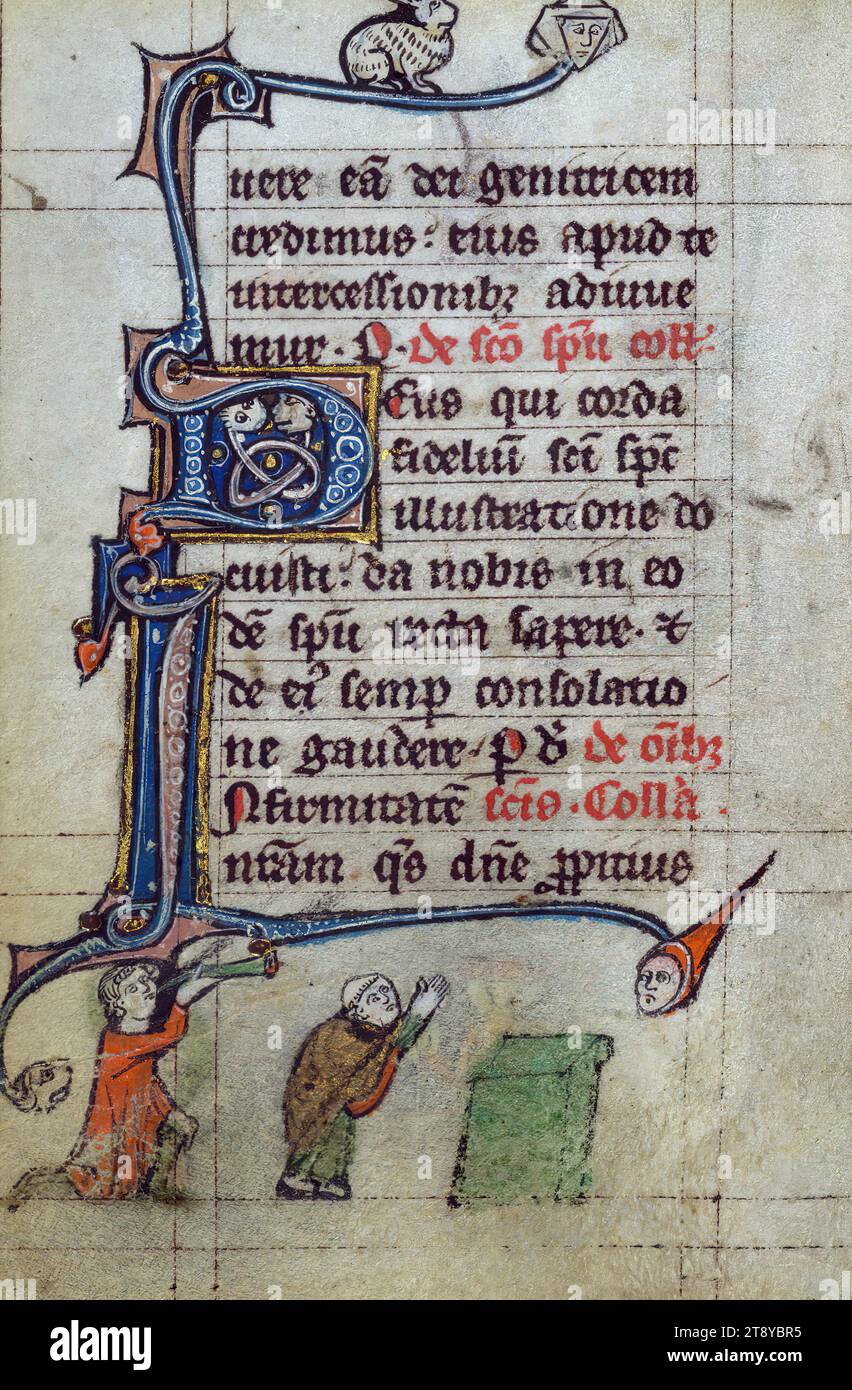 uere eā dei genitricem
credimus: eius apud te
intercessionibꝫ adiuue
mur. P. de sc̄o sp̄u coll'.
Eus qui corda
fideliū sc̄i sp̄c
illustratione do
cuisti: da nobis in eo
dē sp̄u recta sapere. ⁊
de eiꝰ semꝑ consolatio
ne gaudere. ꝑ d̄ de om̄ibꝫ
Nfirmitatē sc̄is. Coll'a.
nr̄am q̄s dn̄e ꝓpitius
alamy
alamy
Image ID: 2T8YBR5
www.alamy.com